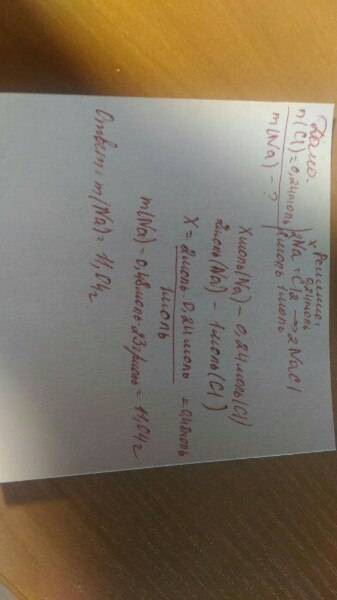 Дано:
n(Cl)=0,24моль
m(Na) - ?
Решение:
x 0,24моль
2Na + Cl2 → 2NaCl
2моль 1моль
X моль(Na) - 0,24 моль(Cl)
2моль(Na) - 1моль(Cl)
X = 2моль·0,24моль / 1моль = 0,48моль
m(Na) = 0,48моль·23г/моль = 11,04г
Ответ: m(Na) = 11,04г